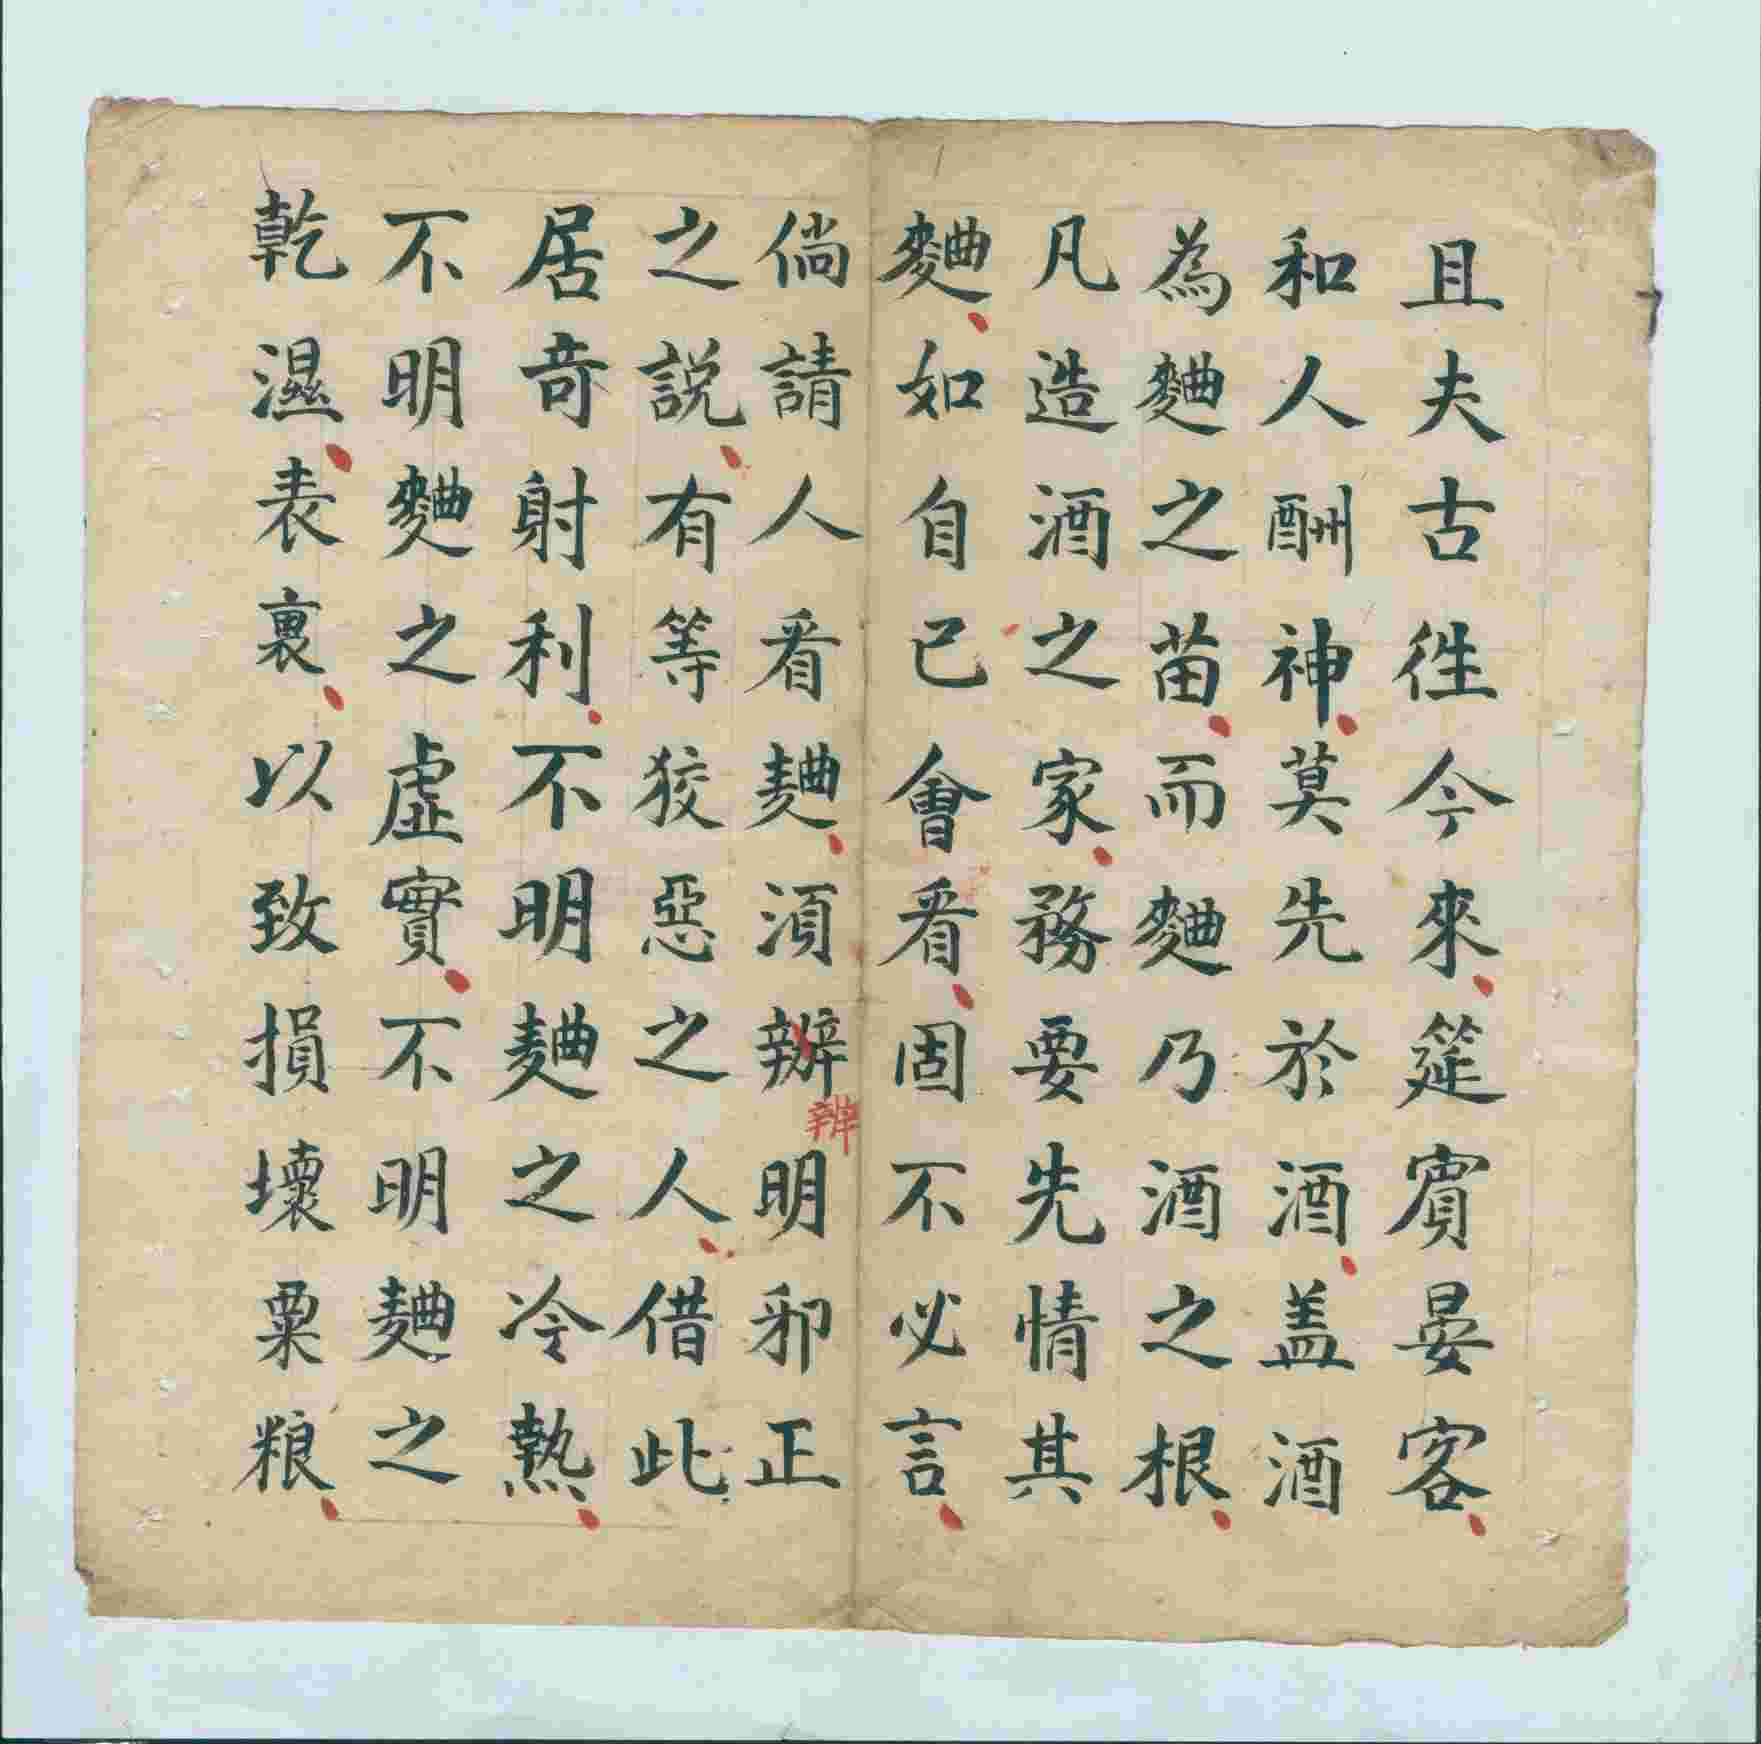 且夫古徃今來、筵賔晏客、
和人酬神、莫先於酒、盖酒
為麯之苗、而麯乃酒之根、
凡造酒之家、務要先情其
麯、如自己會看、固不必言、
倘請人看麯、須辨明邪正
辨
之説、有等狡惡之人、借此
居奇射利、不明麯之冷熱、
不明麯之虛實、不明麯之
乾濕、表裏、以致損壞粟粮、